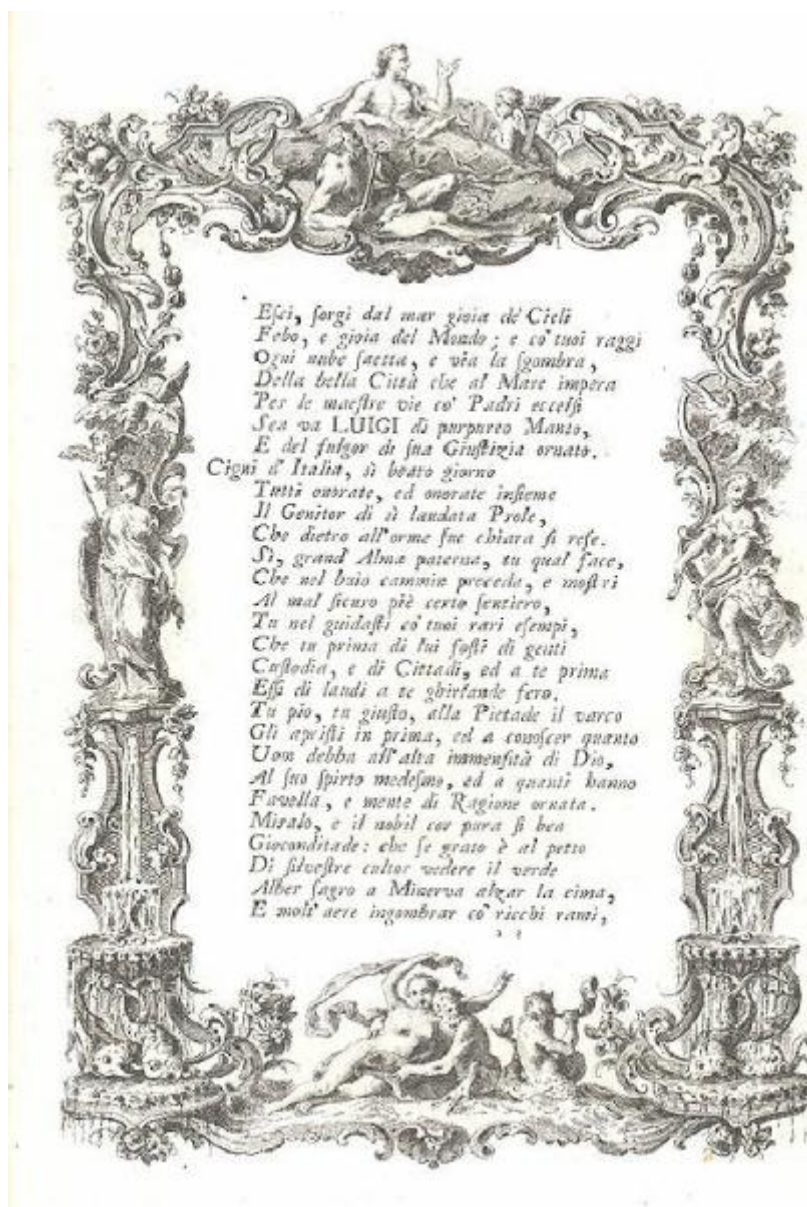 Esci, sorgi dal mar gioia de' Cieli
Febo, e gioia del Mondo; e co' tuoi raggi
Ogni nube saetta, e via la sgombra,
Della bella Città che al Mare impera
Per le maestre vie co' Padri eccelsi
Sen va LUIGI di purpureo Manto,
E del fulgor di sua Giustizia ornato.
Cigni d' Italia, sì beato giorno
Tutti onorate, ed onorate insieme
Il Genitor di sì laudata Prole,
Che dietro all' orme sue chiara si rese.
Sì, grand' Alma paterna, tu qual face,
Che nel buio cammin preceda, e mostri
Al mal sicuro piè certo sentiero,
Tu nel guidasti co' tuoi rari esempi,
Che tu prima di lui fosti di genti
Custodia, e di Cittadi, ed a te prima
Essi di laudi a te ghirlande fero.
Tu pio, tu giusto, alla Pietade il varco
Gli apristi in prima, ed a conoscer quanto
Uom debba all' alta immensità di Dio,
Al suo spirto medesmo, ed a quanti hanno
Favella, e mente di Ragione ornata.
Miralo, e il nobil cor pura si bea
Gioconditade: che se grato è al petto
Di silvestre cultor vedere il verde
Alber sagro a Minerva alzar la cima,
E molt' aere ingombrar co' ricchi rami,